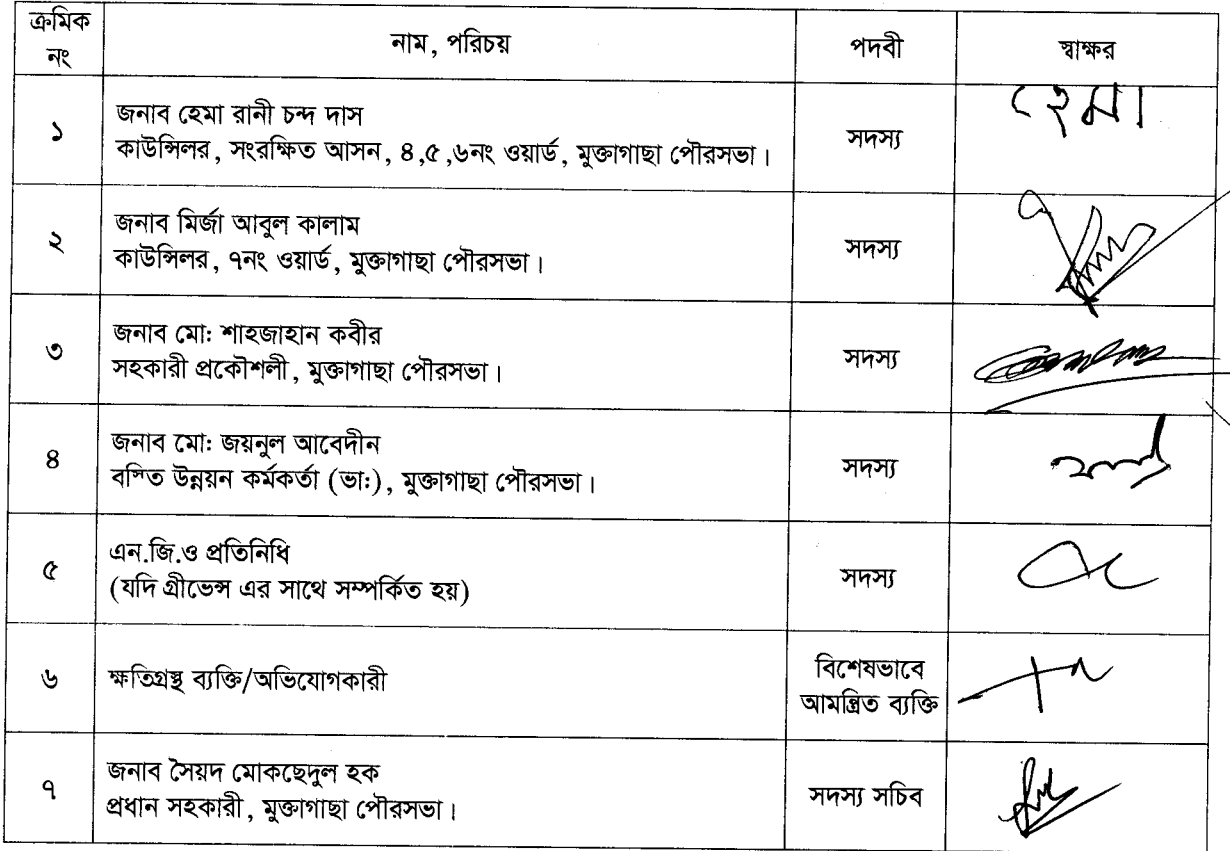 ক্রমিক
নং
নাম, পরিচয়
পদবী
স্বাক্ষর
১
জনাব হেমা রানী চন্দ দাস
কাউন্সিলর, সংরক্ষিত আসন, ৪,৫,৬নং ওয়ার্ড, মুক্তাগাছা পৌরসভা।
সদস্য
হেমা
২
জনাব মির্জা আবুল কালাম
কাউন্সিলর, ৭নং ওয়ার্ড, মুক্তাগাছা পৌরসভা।
সদস্য
৩
জনাব মো: শাহজাহান কবীর
সহকারী প্রকৌশলী, মুক্তাগাছা পৌরসভা।
সদস্য
৪
জনাব মো: জয়নুল আবেদীন
বসিত্ম উন্নয়ন কর্মকর্তা (ভা:), মুক্তাগাছা পৌরসভা।
সদস্য
৫
এন.জি.ও প্রতিনিধি
(যদি গ্রীভেন্স এর সাথে সম্পর্কিত হয়)
সদস্য
৬
ক্ষতিগ্রস্থ ব্যক্তি/অভিযোগকারী
বিশেষভাবে
আমন্ত্রিত ব্যক্তি
৭
জনাব সৈয়দ মোকছেদুল হক
প্রধান সহকারী, মুক্তাগাছা পৌরসভা।
সদস্য সচিব